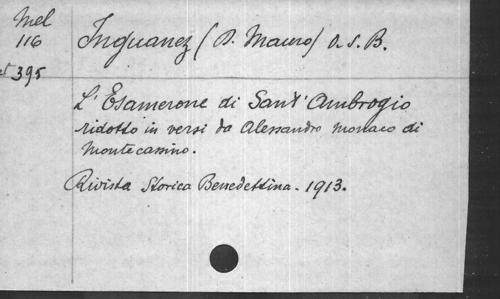 Mel
116
395
Inguanez (D. Mauro) O.S.B.
L'Esamerone di Sant'Ambrogio
ridotto in versi da Alessandro monaco di
Montecassino.
Rivista Storica Benedettina. 1913.